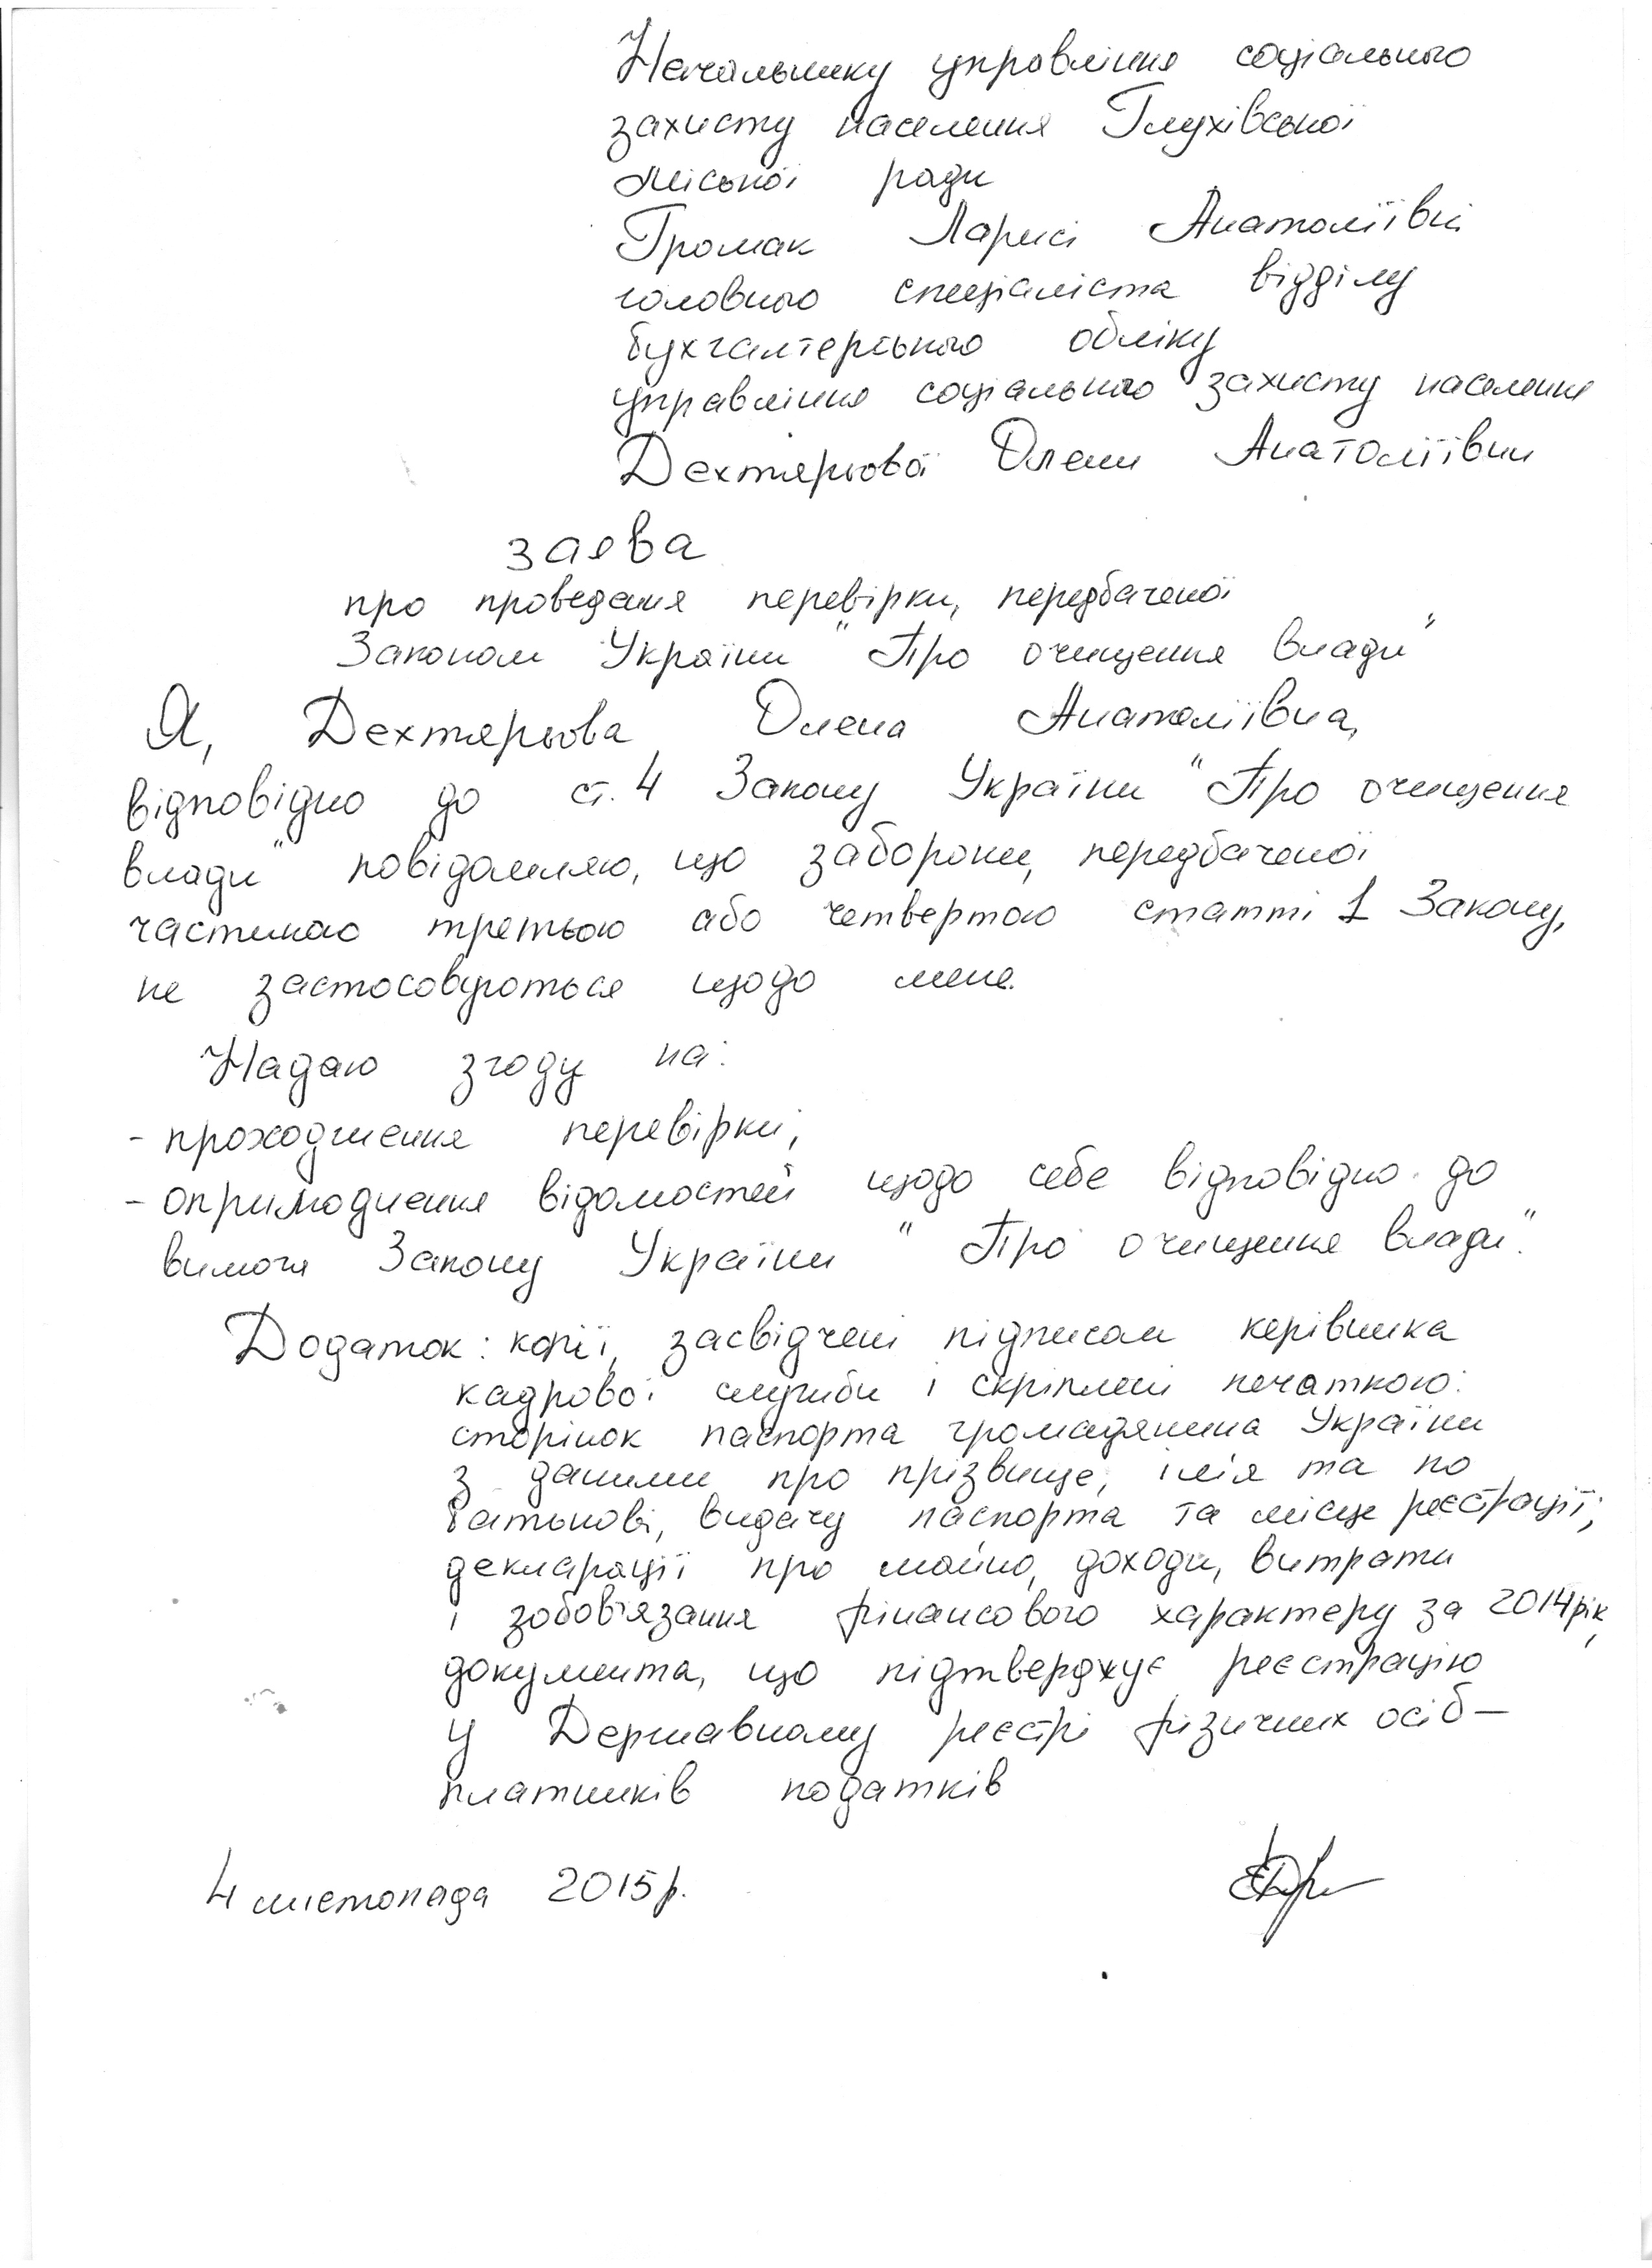 Начальнику управління соціального
захисту населення Глухівської
міської ради
Громак Ларисі Анатоліївні
головного спеціаліста відділу
бухгалтерського обліку
управління соціального захисту населення
Дехтярьової Олени Анатоліївни
заява
про проведення перевірки, передбаченої
Законом України "Про очищення влади"
Я, Дехтярьова Олена Анатоліївна,
відповідно до ст. 4 Закону України "Про очищення
влади" повідомляю, що заборони, передбаченої
частиною третьою або четвертою статті 1 Закону,
не застосовуються щодо мене.
Надаю згоду на:
- проходження перевірки;
- оприлюднення відомостей щодо себе відповідно до
вимоги Закону України "Про очищення влади".
Додаток: копії, засвідчені підписом керівника
кадрової служби і скріплені печаткою:
сторінок паспорта громадянина України
з даними про прізвище, ім'я та по
батькові, видачу паспорта та місце реєстрації;
декларації про майно, доходи, витрати
і зобов'язання фінансового характеру за 2014 рік,
документа, що підтверджує реєстрацію
у Державному реєстрі фізичних осіб –
платників податків
4 листопада 2015р.